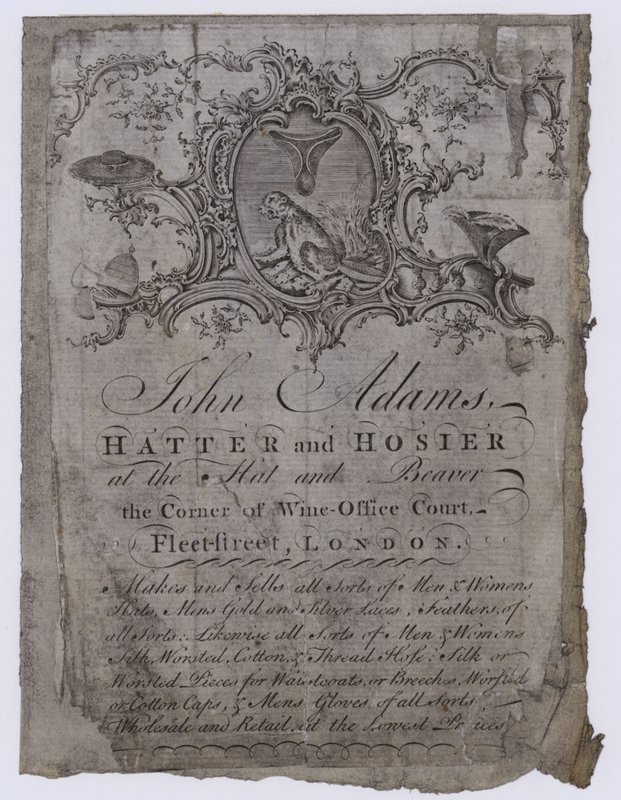 John Adams,
HATTER and HOSIER
at the Hat and Beaver
the Corner of Wine-Office Court,
Fleet-street, LONDON.
Makes and Sells all Sorts of Men & Womens
Hats, Mens Gold and Silver Laces, Feathers, of
all Sorts: Likewise all Sorts of Men & Womens
Silk, Worsted, Cotton, & Thread Hose: Silk or
Worsted Pieces for Waistcoats, or Breeches, Worsted
or Cotton Caps, & Mens Gloves of all Sorts,
Wholesale and Retail, at the Lowest Prices